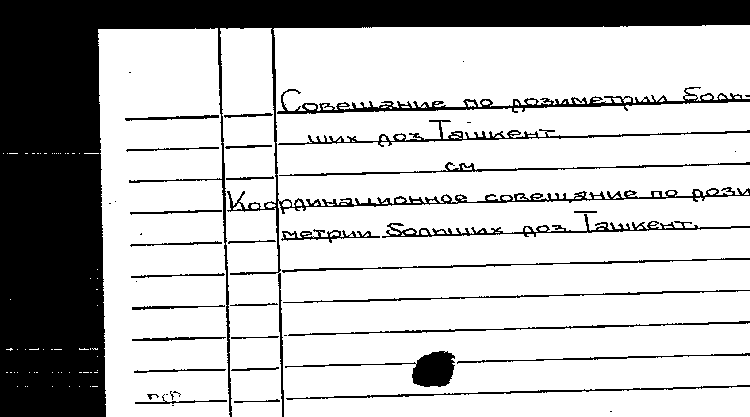 Совещание по дозиметрии боль-
ших доз Ташкент.
см.
Координационное совещание по дози
метрии больших доз Ташкент.